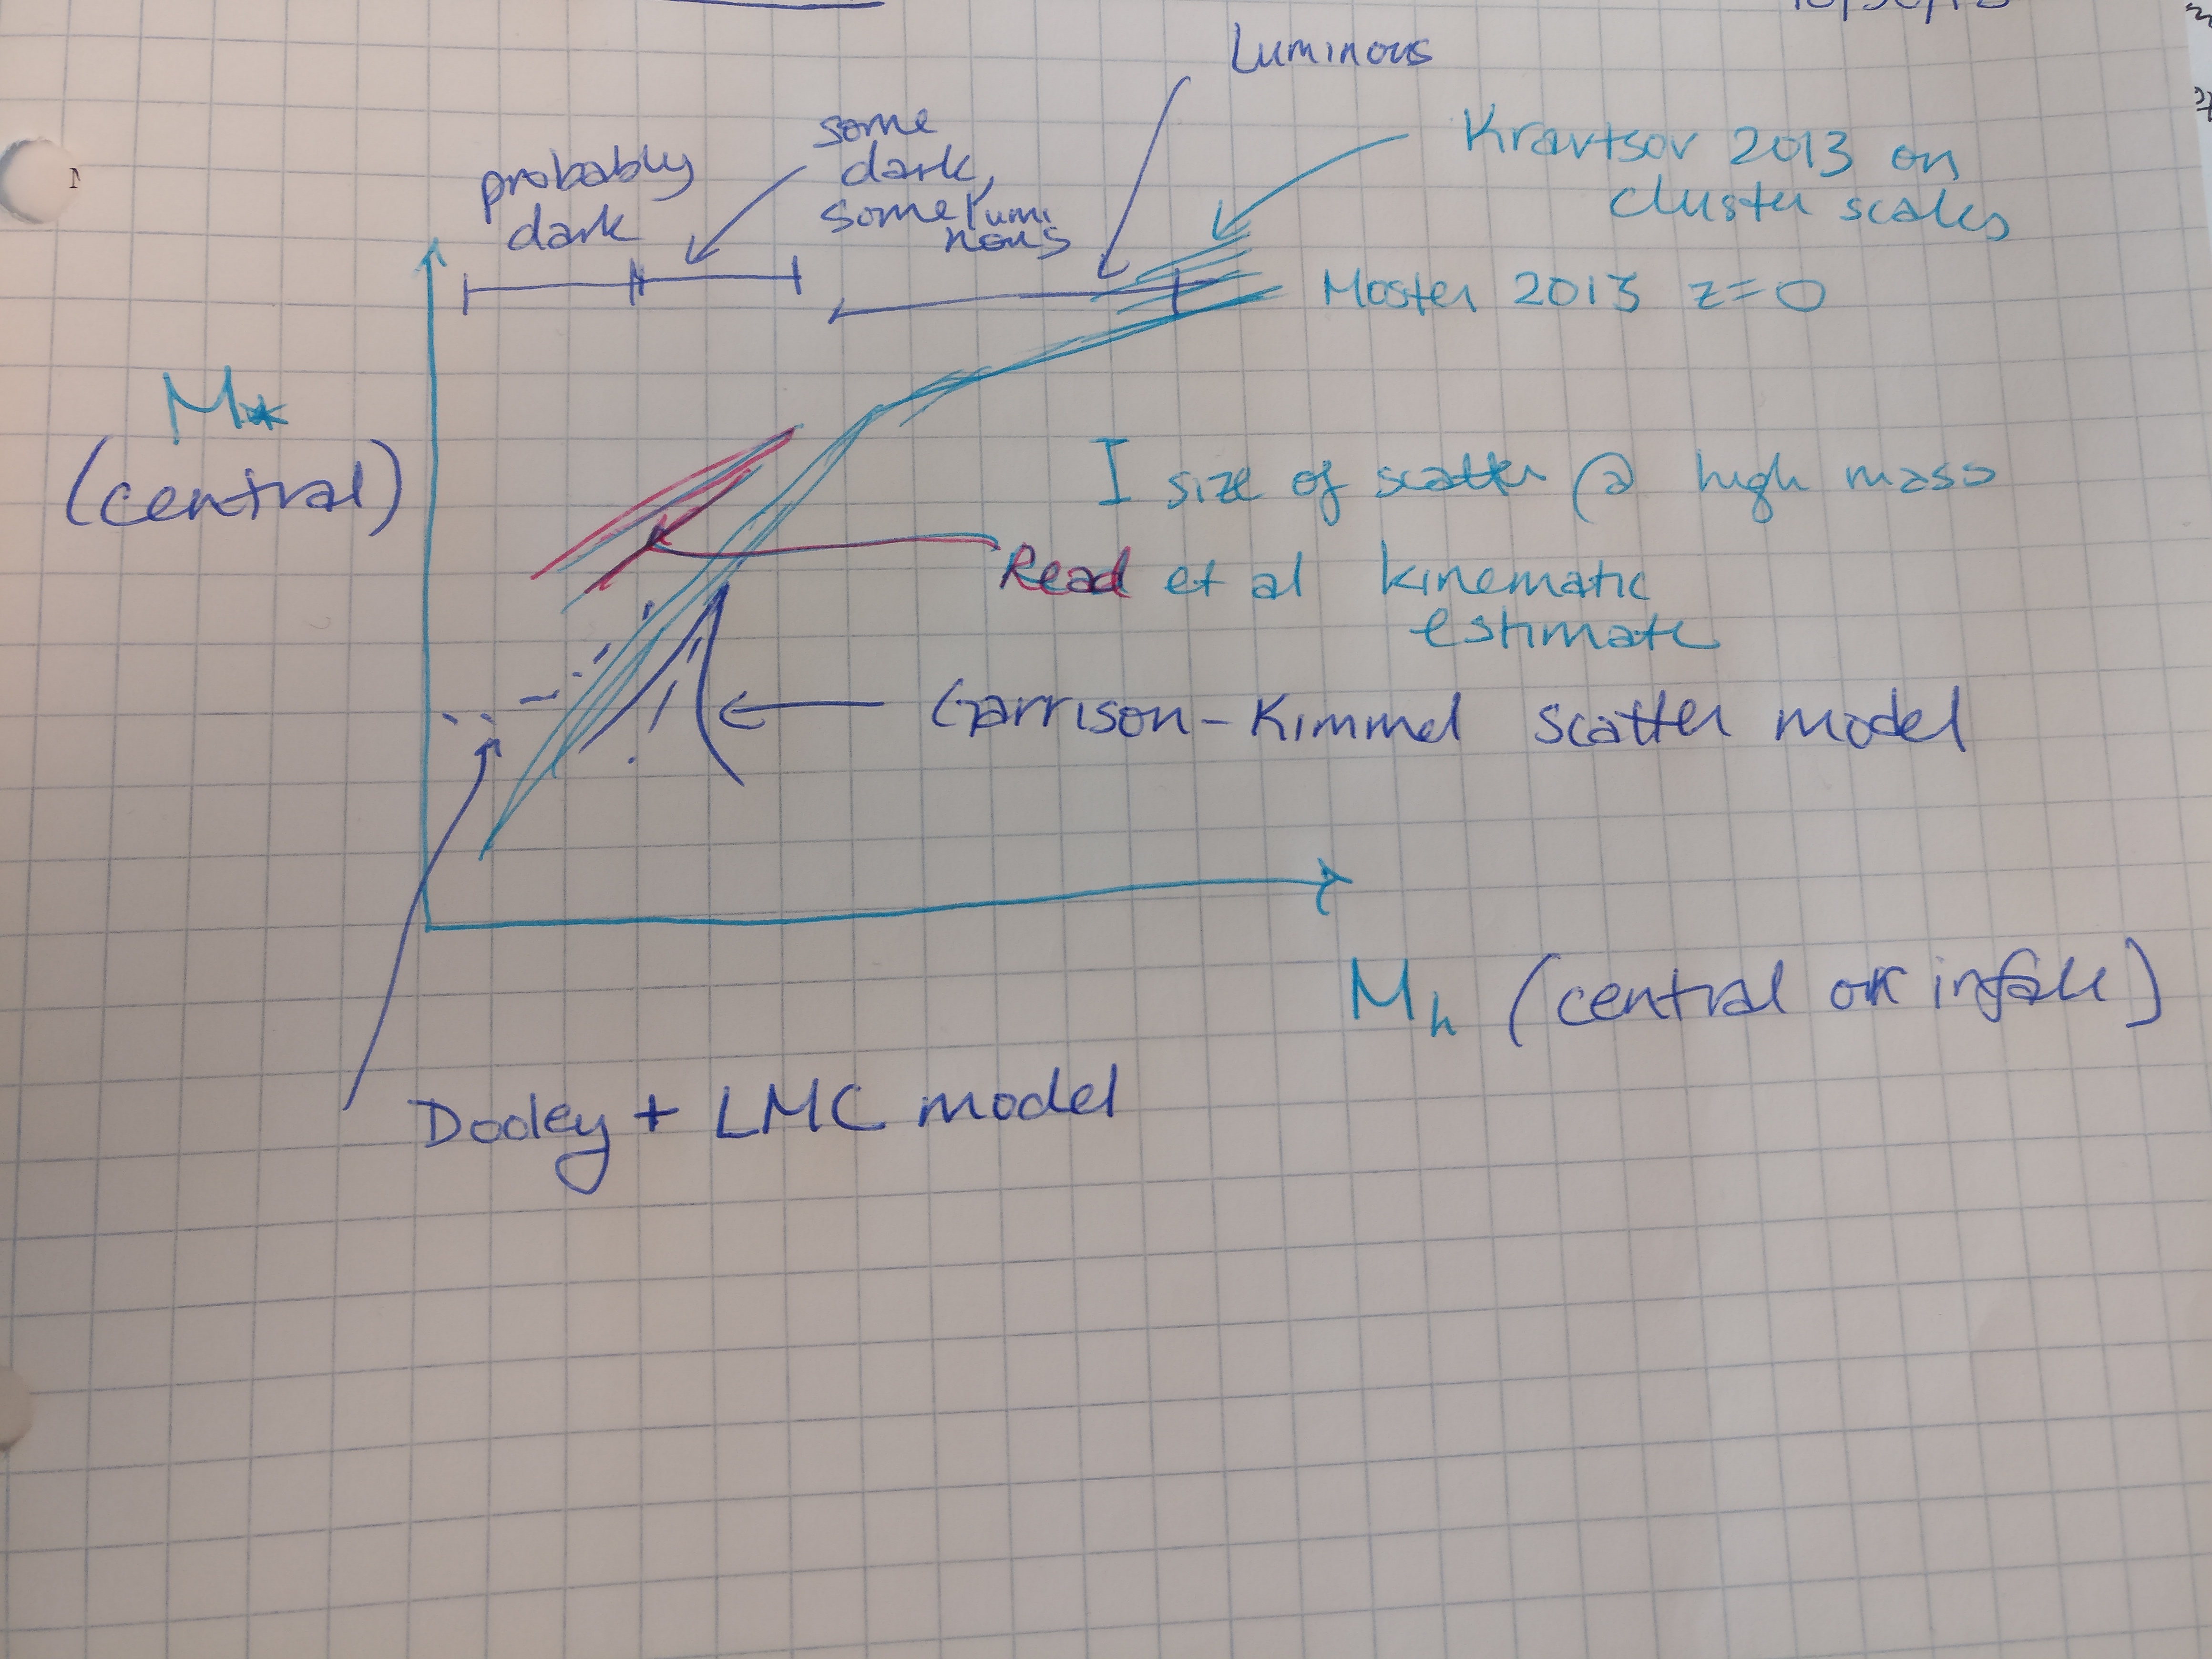 Luminous
probably
dark
some
dark,
some lumi
nous
Kravtsov 2013 on
cluster scales
Moster 2013 z=0
M*
(central)
I size of scatter @ high mass
Read et al kinematic
estimate
Garrison-Kimmel scatter model
Mh (central or infall)
Dooley + LMC model